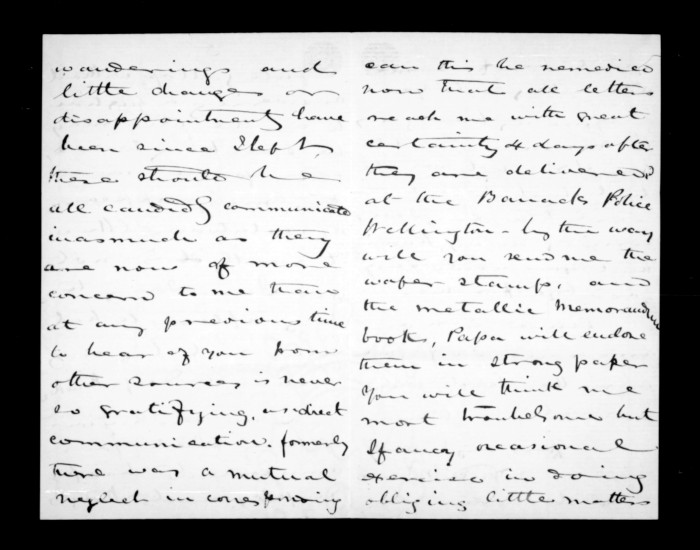 wanderings and
little changes or
disappointments have
been since I left,
these should be
all candidly communicated
inasmuch as they
are now of more
concern to me than
at any previous time
to hear of you from
other sources is never
so gratifying, as direct
communication. formerly
there was a mutual
neglect in corresponding
can this be remedied
now that all letters
reach me with great
certainty 4 days after
they are delivered
at the Barracks Police
Wellington - by the way
will you send me the
wafer stamps, and
the metallic memorandum
books, Papa will enclose
them in strong paper
You will think me
most troublesome but
I fancy occasional
exercise in doing
obliging little matters